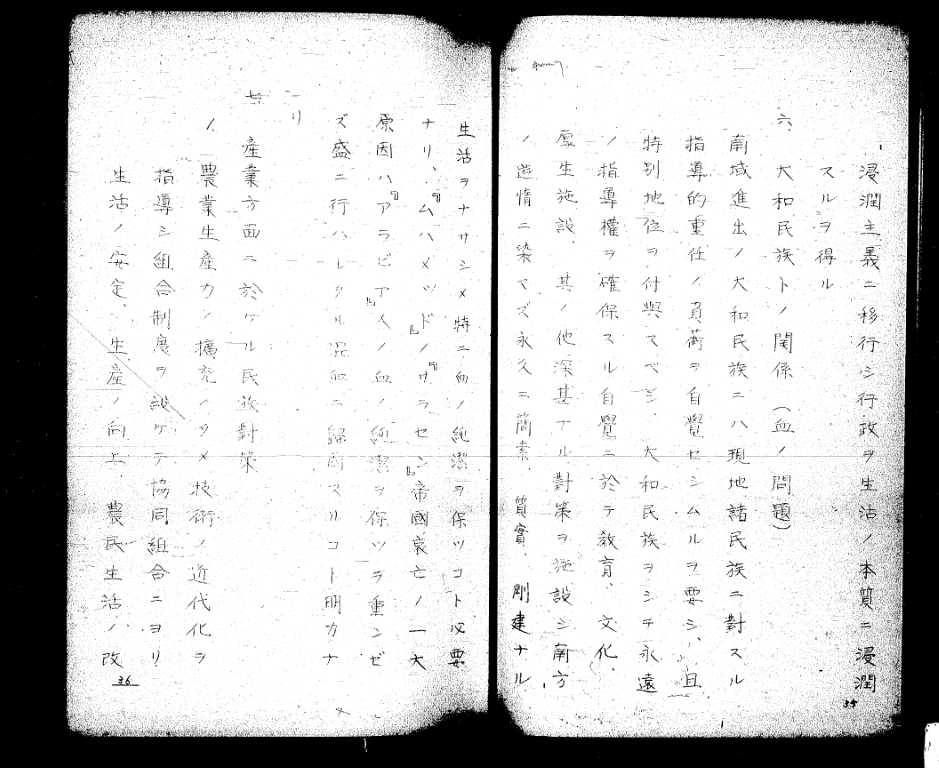 浸潤主義ニ移行シ行政ヲ生活ノ本質ニ浸潤
スルヲ得ル
六、大和民族トノ関係(血ノ問題)
南域進出ノ大和民族ニハ現地諸民族ニ對スル
指導的重任ノ負荷ヲ自覺セシムルヲ要シ、且
特別地位ヲ付與スベシ、大和民族ヲシテ永遠
ノ指導權ヲ確保スル自覺ニ於テ教育、文化、
厚生施設、其ノ他深甚ナル對策ヲ施設シ南方
ノ遊惰ニ染マズ永久ニ簡素、質實、剛建ナル
35
生活ヲナサシメ特ニ血ノ純潔ヲ保ツコト必要
ナリ、『ムハメッド』ノ『サラセン』帝國衰亡ノ一大
原因ハ『アラビア』人ノ血ノ純潔ヲ保ツヲ重ンゼ
ズ盛ニ行ハレタル混血ニ歸因スルコト明カナ
リ
七、産業方面ニ於ケル民族對策
1、農業生産力ノ擴充ノタメ技術ノ近代化ヲ
指導シ組合制度ヲ設ケテ協同組合ニヨリ
生活ノ安定、生産ノ向上、農民生活ノ改
36